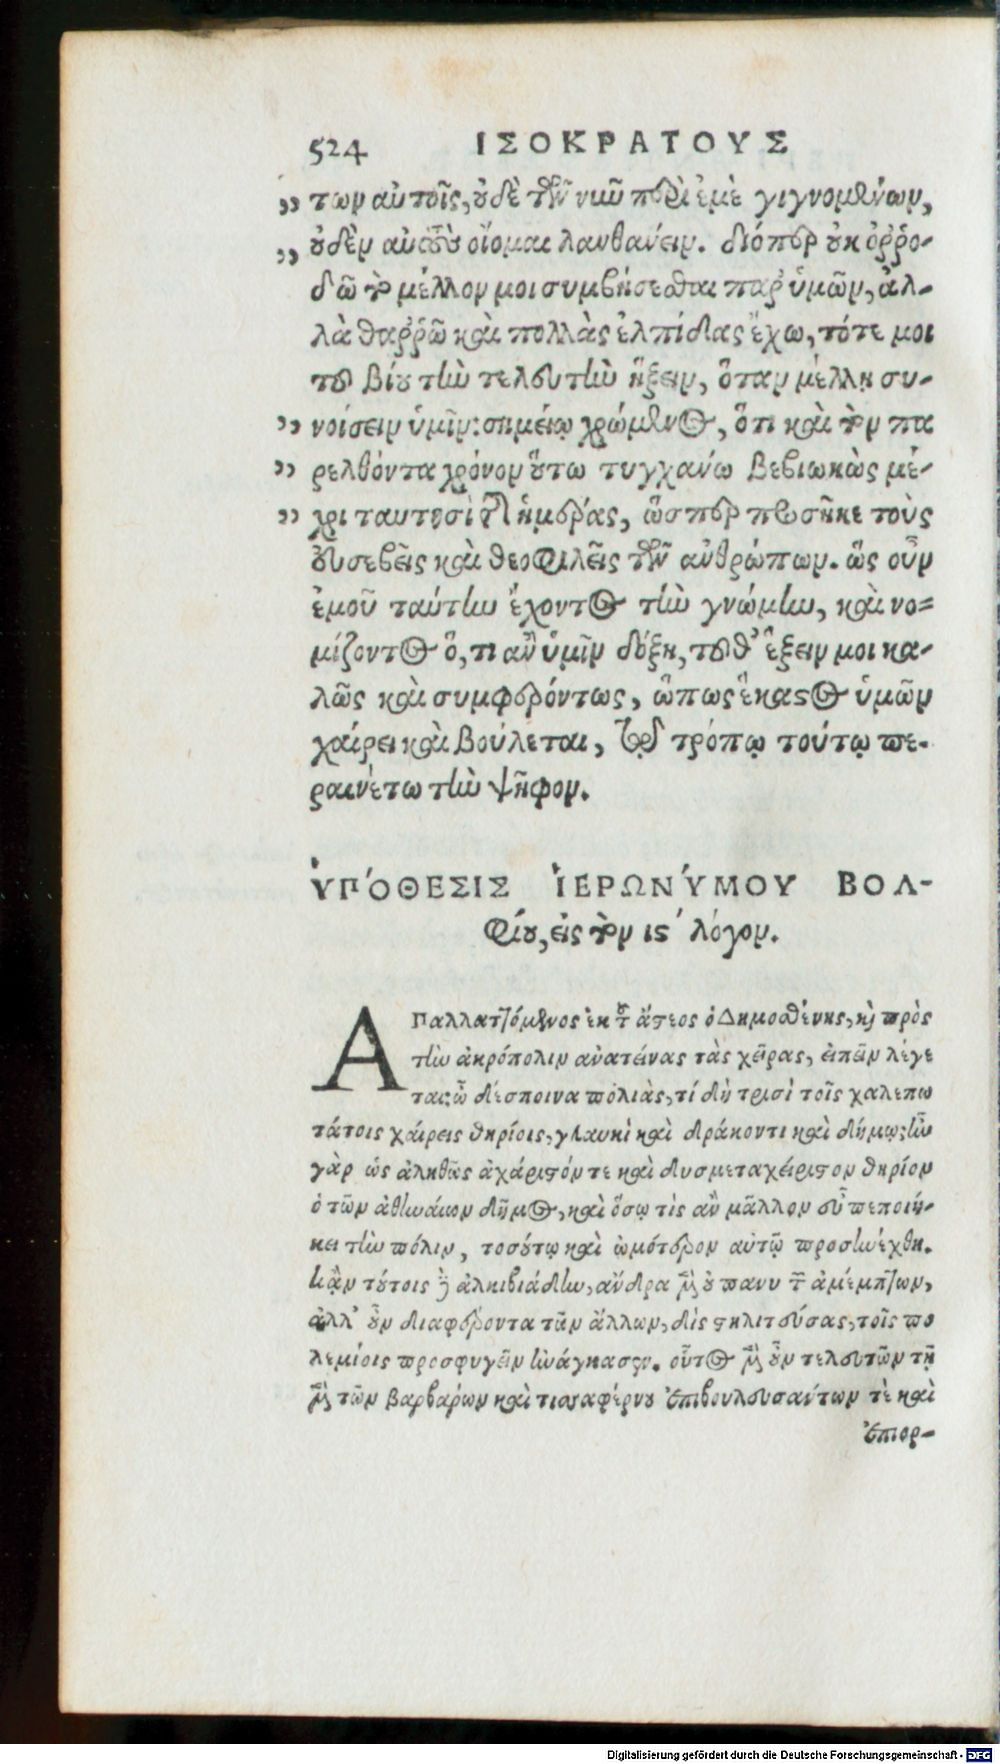 524 ΙΣΟΚΡΑΤΟΥΣ
των αὐτοῖς, οὐδὲ τῶν νῦν περὶ ἐμὲ γιγνομένων,
οὐδὲν αὐτοὺς οἴομαι λανθάνειν. διόπερ οὐκ ὀῤῥο-
δῶ τὸ μέλλον μοι συμβήσεσθαι παρ' ὑμῶν, ἀλ-
λὰ θαῤῥῶ καὶ πολλὰς ἐλπίδας ἔχω, τότε μοι
τοῦ βίου τὴν τελευτὴν ἥξειν, ὅταν μέλλῃ συ-
νοίσειν ὑμῖν: σημείῳ χρώμενος, ὅτι καὶ τὸν πα
ρελθόντα χρόνον οὕτω τυγχάνω βεβιωκὼς μέ-
χρι ταυτησὶ τῆς ἡμέρας, ὥσπερ προσῆκε τοὺς
εὐσεβεῖς καὶ θεοφιλεῖς τῶν ἀνθρώπων. ὡς οὖν
ἐμοῦ ταύτην ἔχοντος τὴν γνώμην, καὶ νο=
μίζοντος ὅ, τι ἂν ὑμῖν δόξῃ, τοῦθ' ἕξειν μοι κα-
λῶς καὶ συμφερόντως, ὅπως ἕκαστος ὑμῶν
χαίρει καὶ βούλεται, τῷ τρόπῳ τούτῳ πε-
ραινέτω τὴν ψῆφον.
ὙΠΌΘΕΣΙΣ ἹΕΡΩΝΎΜΟΥ ΒΟΛ-
φίου, εἰς τὸν ις' λόγον.
Απαλλαττόμενος ἐκ τοῦ ἄστεος ὁ Δημοσθένης, καὶ πρὸς
τὴν ἀκρόπολιν ἀνατείνας τὰς χεῖρας, εἰπεῖν λέγε
ται; ὦ δέσποινα πολιὰς, τί δὴ τρισὶ τοῖς χαλεπω
τάτοις χαίρεις θηρίοις, γλαυκὶ καὶ δράκοντι καὶ δήμῳ; ἦν
γὰρ ὡς ἀληθῶς ἀχάριστόν τε καὶ δυσμεταχείριστον θηρίον
ὁ τῶν ἀθηναίων δῆμος, καὶ ὅσῳ τὶς ἂν μᾶλλον εὖ πεποιή-
κει τὴν πόλιν, τοσούτῳ καὶ ὠμότερον αὐτῷ προσηνέχθη.
κἀν τούτοις καὶ ἀλκιβιάδην, ἄνδρα μὲν οὐ πανυ τῶν ἀμέμπτων,
ἀλλ' οὖν διαφέροντα τῶν ἄλλων, δὶς στηλιτεύσας, τοῖς πο
λεμίοις προσφυγεῖν ἠνάγκασεν. οὗτος μὲν οὖν τελευτῶν τῇ
μὲν τῶν βαρβάρων καὶ τισσαφέρνου ἐπιβουλευσάντων τὲ καὶ
ἐπιορ-
Digitalisierung gefördert durch die Deutsche Forschungsgemeinschaft - DFG